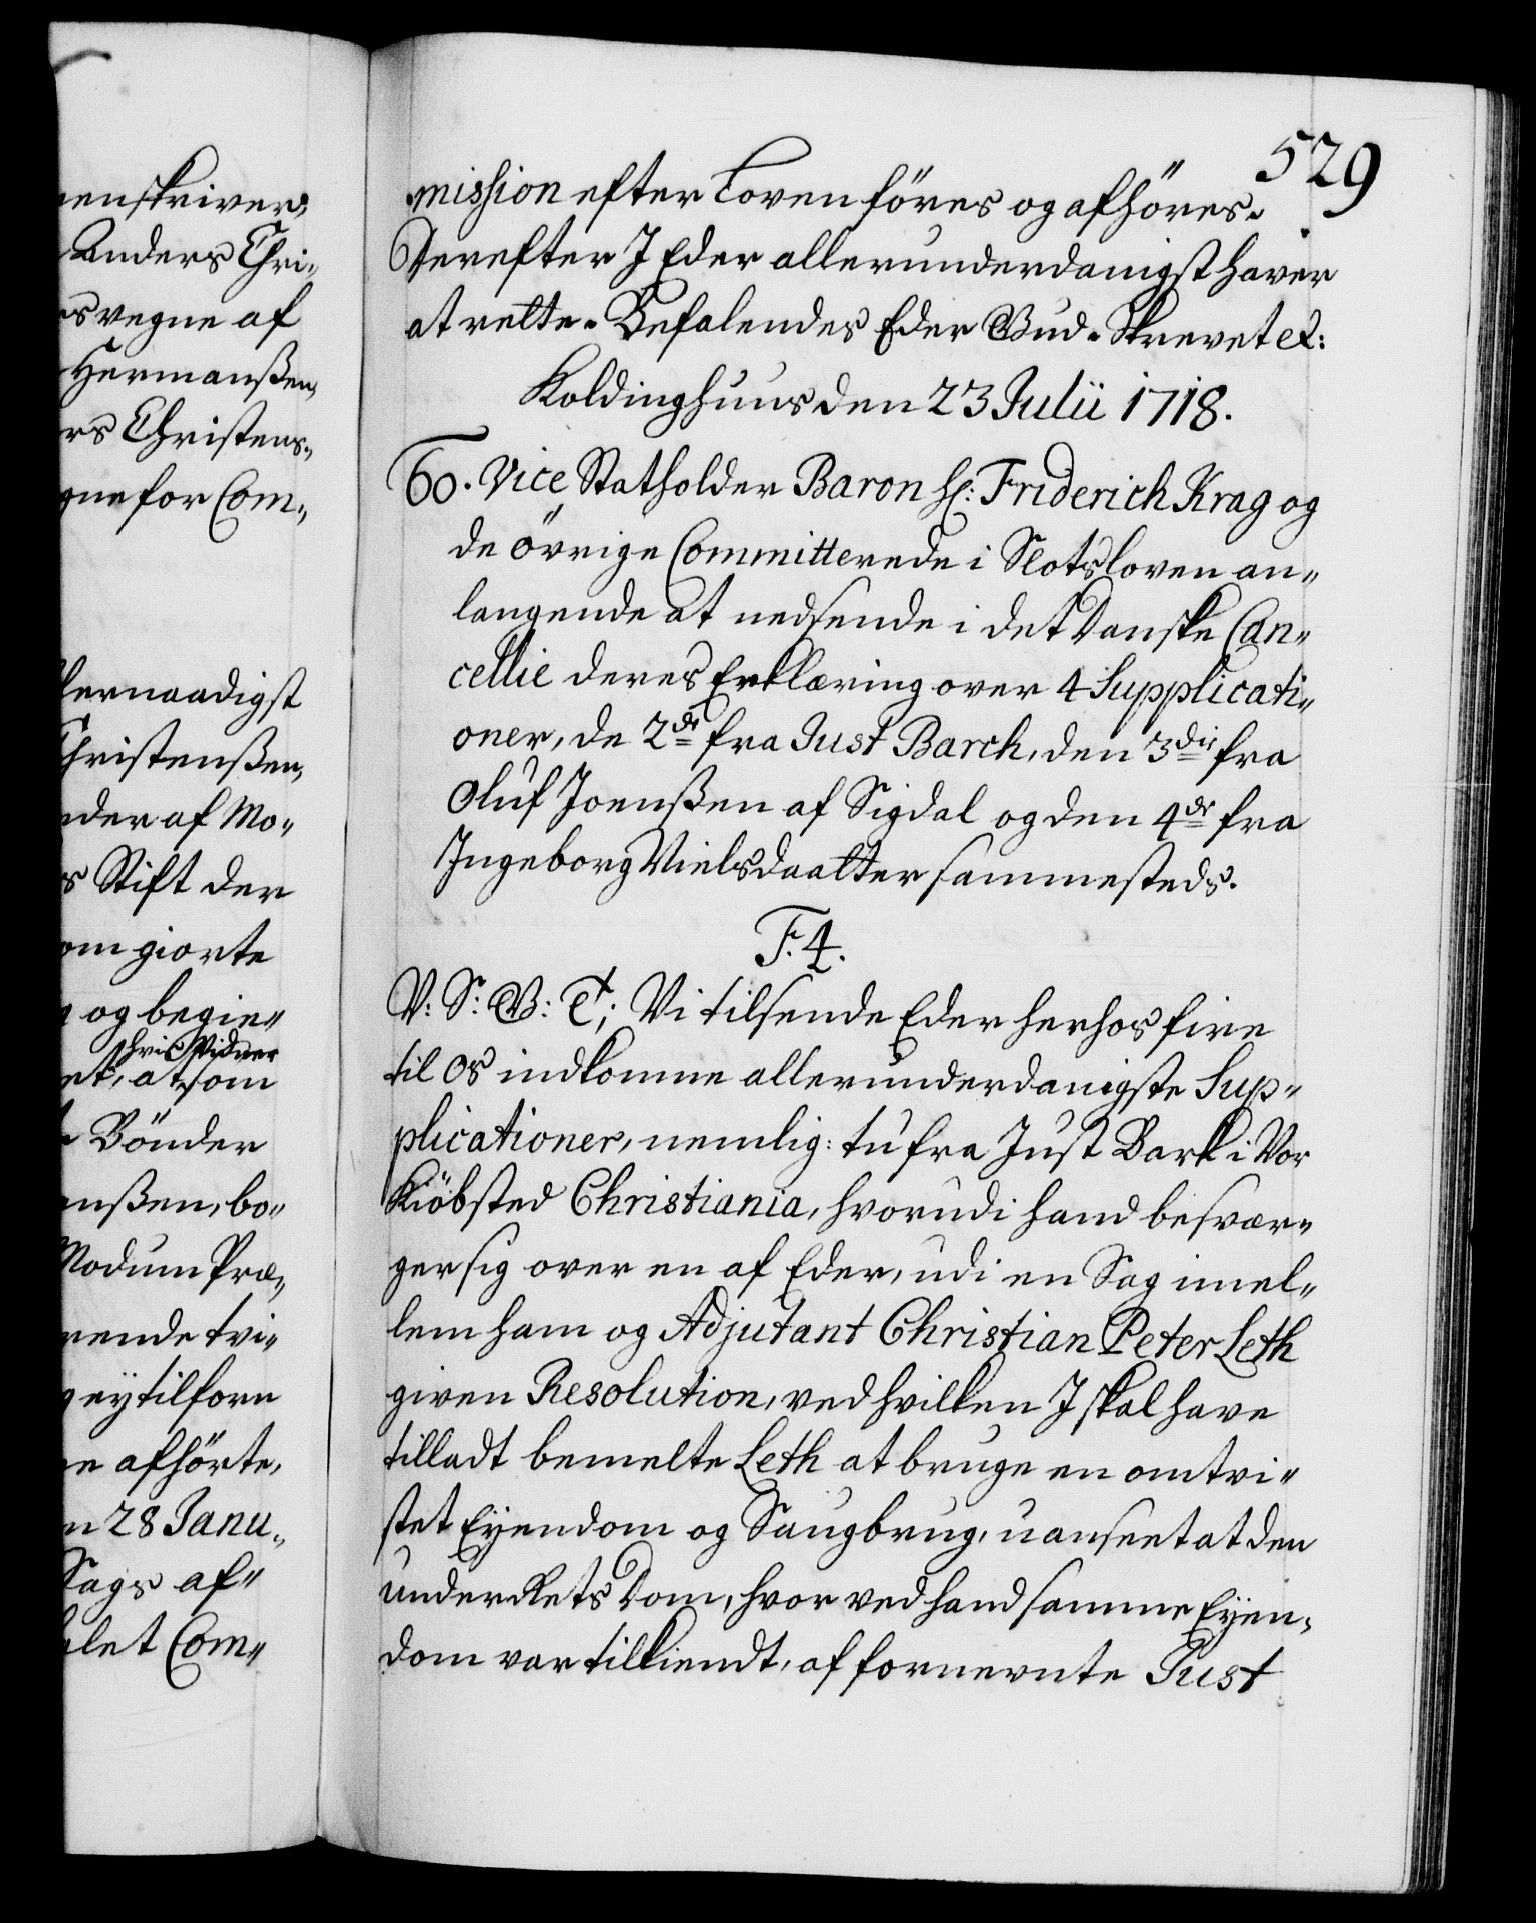 enskriver,
Anders Chri-
svegne af
Hermanßen,
rs Christens-
gne for Com-
lernaadigst
Christenßen,
nder af Mo-
s Stift der
om giorte
og begie-
hvis Vidner
et, at som
Bönder
nßen, bo-
Modum Præ-
rende tvi-
ey tilforn
e afhörte,
n 28 Janu-
Sags af-
let Com-
529
mission efter Loven föres og afhöres.
Derefter I Eder allerunderdanigst haver
at rette. Befalendes Eder Gud. Skrevet etc:
Koldinghuus den 23 Julii 1718.
To. Vice Statholder Baron Hr: Friderich Krag og
de övrige Committerede i Slotsloven an-
langende at nedsende i det Danske Can-
cellie deres Erklæring over 4 Supplicati-
oner, de 2de fra Just Barch, den 3die fra
Oluf Joenßen af Sigdal og den 4de fra
Ingeborg Nielsdaatter sammesteds.
F. 4.
V: S: G: T; Vi tilsende Eder herhos fire
til Os indkomne allerunderdanigste Sup-
plicationer, nemlig: tu fra Just Bark i Vor
Kiöbsted Christiania, hvorudi hand besvær-
ger sig over en af Eder, udi en Sag imel-
lem ham og Adjutant Christian Peter Leth
given Resolution, ved hvilken I skal have
tilladt bemelte Leth at bruge en omtvi-
stet Eyendom og Saugbrug, uanseet at den
underRets Dom, hvor ved hand samme Eyen-
dom var tilkiendt, af fornevnte Just